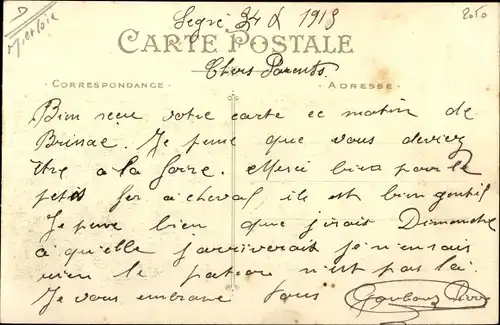 D
M et Loire
2050
Segré 24 X 1915
CARTE POSTALE
Chers Parents.
CORRESPONDANCE
ADRESSE
Bien reçu votre carte ce matin de
Brissac. Je pense que vous deviez
être a la foire. Merci bien pour le
petit fer a cheval, ils est bien gentil
Je pense bien que jirais Dimanche
à qu'elle j'arriverait je n'en sais
rien le patron n'est pas là.
Je vous embrasse tous